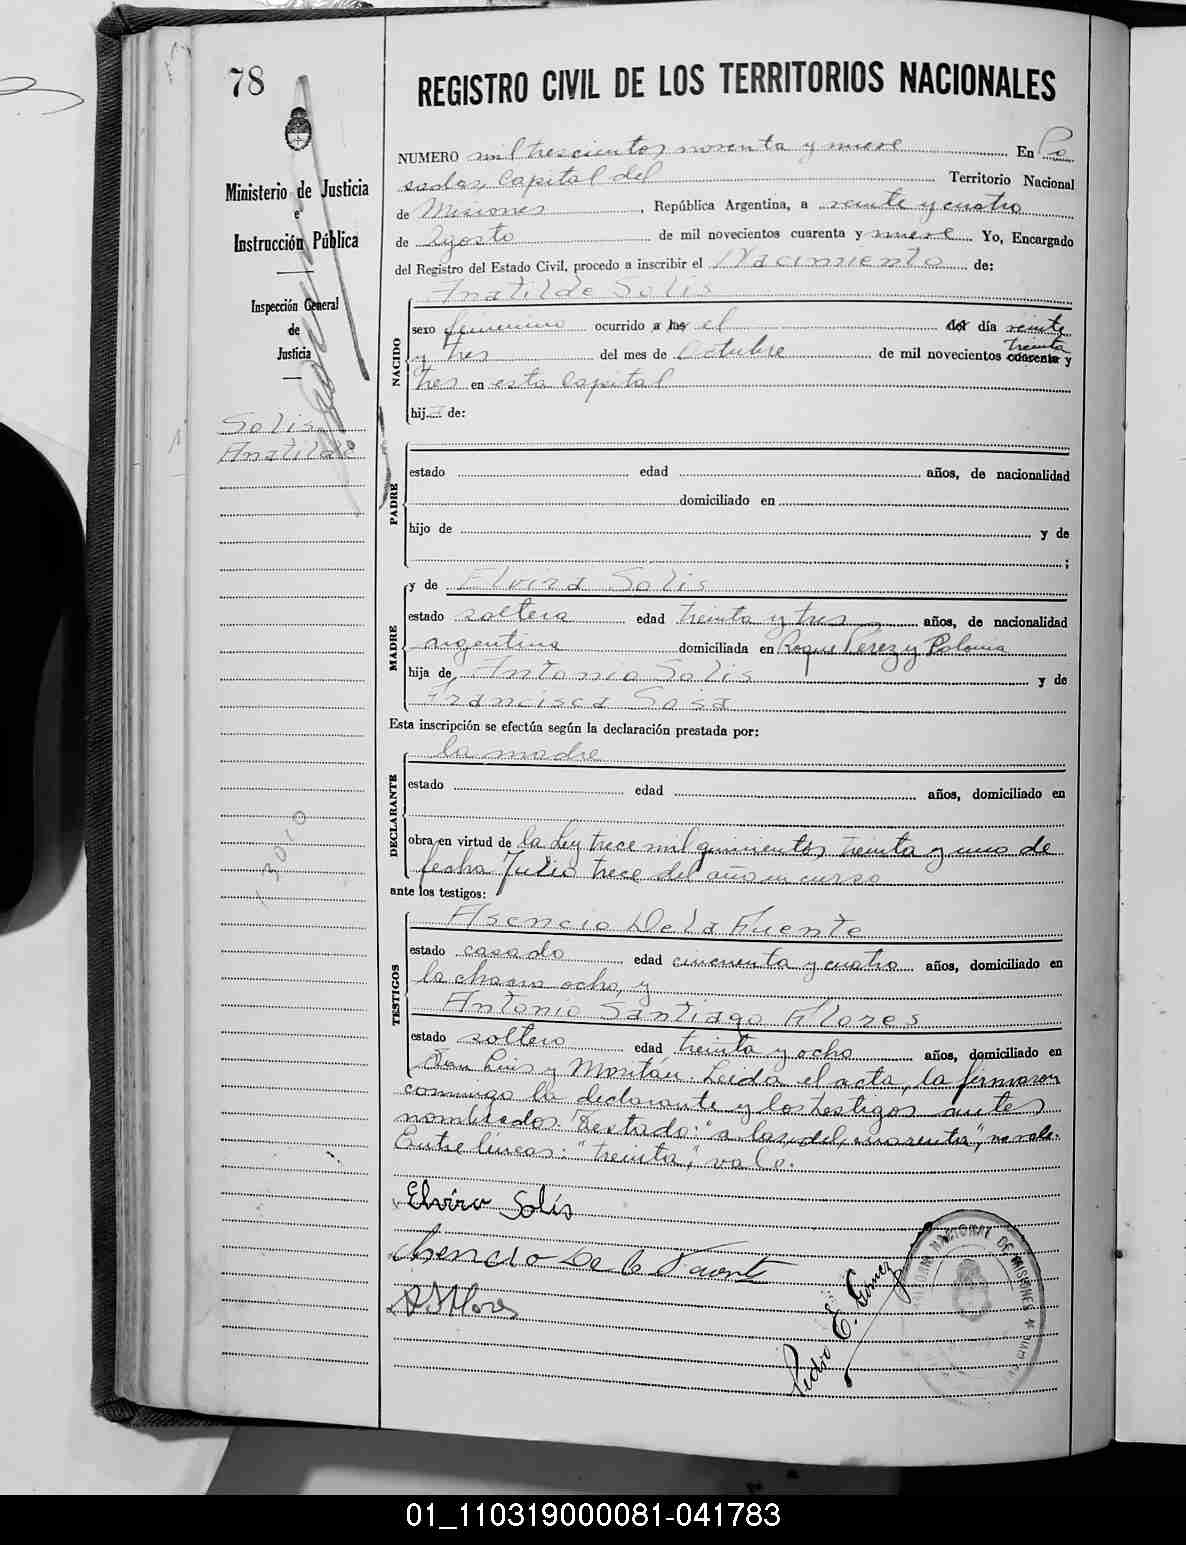 78
REGISTRO CIVIL DE LOS TERRITORIOS NACIONALES
Ministerio de Justicia
e
Instrucción Pública
Inspección General
de
Justicia
Solis
Anatilde
13010
NUMERO mil trescientos noventa y nueve En Po
sadas, Capital del Territorio Nacional
de Misiones, República Argentina, a veinte y cuatro
de Agosto de mil novecientos cuarenta y nueve Yo, Encargado
del Registro del Estado Civil, procedo a inscribir el Nacimiento de:
Anatilde Solis
NACIDO
sexo femenino ocurrido a las el del día veinte
treinta
y tres del mes de Octubre de mil novecientos cuarenta y
tres en esta Capital
hija de:
PADRE
estado edad años, de nacionalidad
domiciliado en
hijo de y de
;
MADRE
y de Elvira Solis
estado soltera edad treinta y tres años, de nacionalidad
argentina domiciliada en Roque Perez y Polonia
hija de Antonio Solis y de
Francisca Sosa
Esta inscripción se efectúa según la declaración prestada por:
la madre
DECLARANTE
estado edad años, domiciliado en
obra en virtud de la Ley trece mil quinientos treinta y uno de
fecha Julio trece del año en curso
ante los testigos:
TESTIGOS
Asencio De la Fuente
estado casado edad cincuenta y cuatro años, domiciliado en
la chacra ocho, y
Antonio Santiago Flores
estado soltero edad treinta y ocho años, domiciliado en
San Luis y Moritán. Leida el acta, la firmaron
conmigo la declarante y los testigos antes
nombrados. Testado: "a las, del, cuarenta", no vale.
Entre lineas: "treinta", vale.
Elvira Solis
Asencio De la Fuente
A S Flores
Pedro E. Gomez
NACIONAL DE MISIONES
01_110319000081-041783